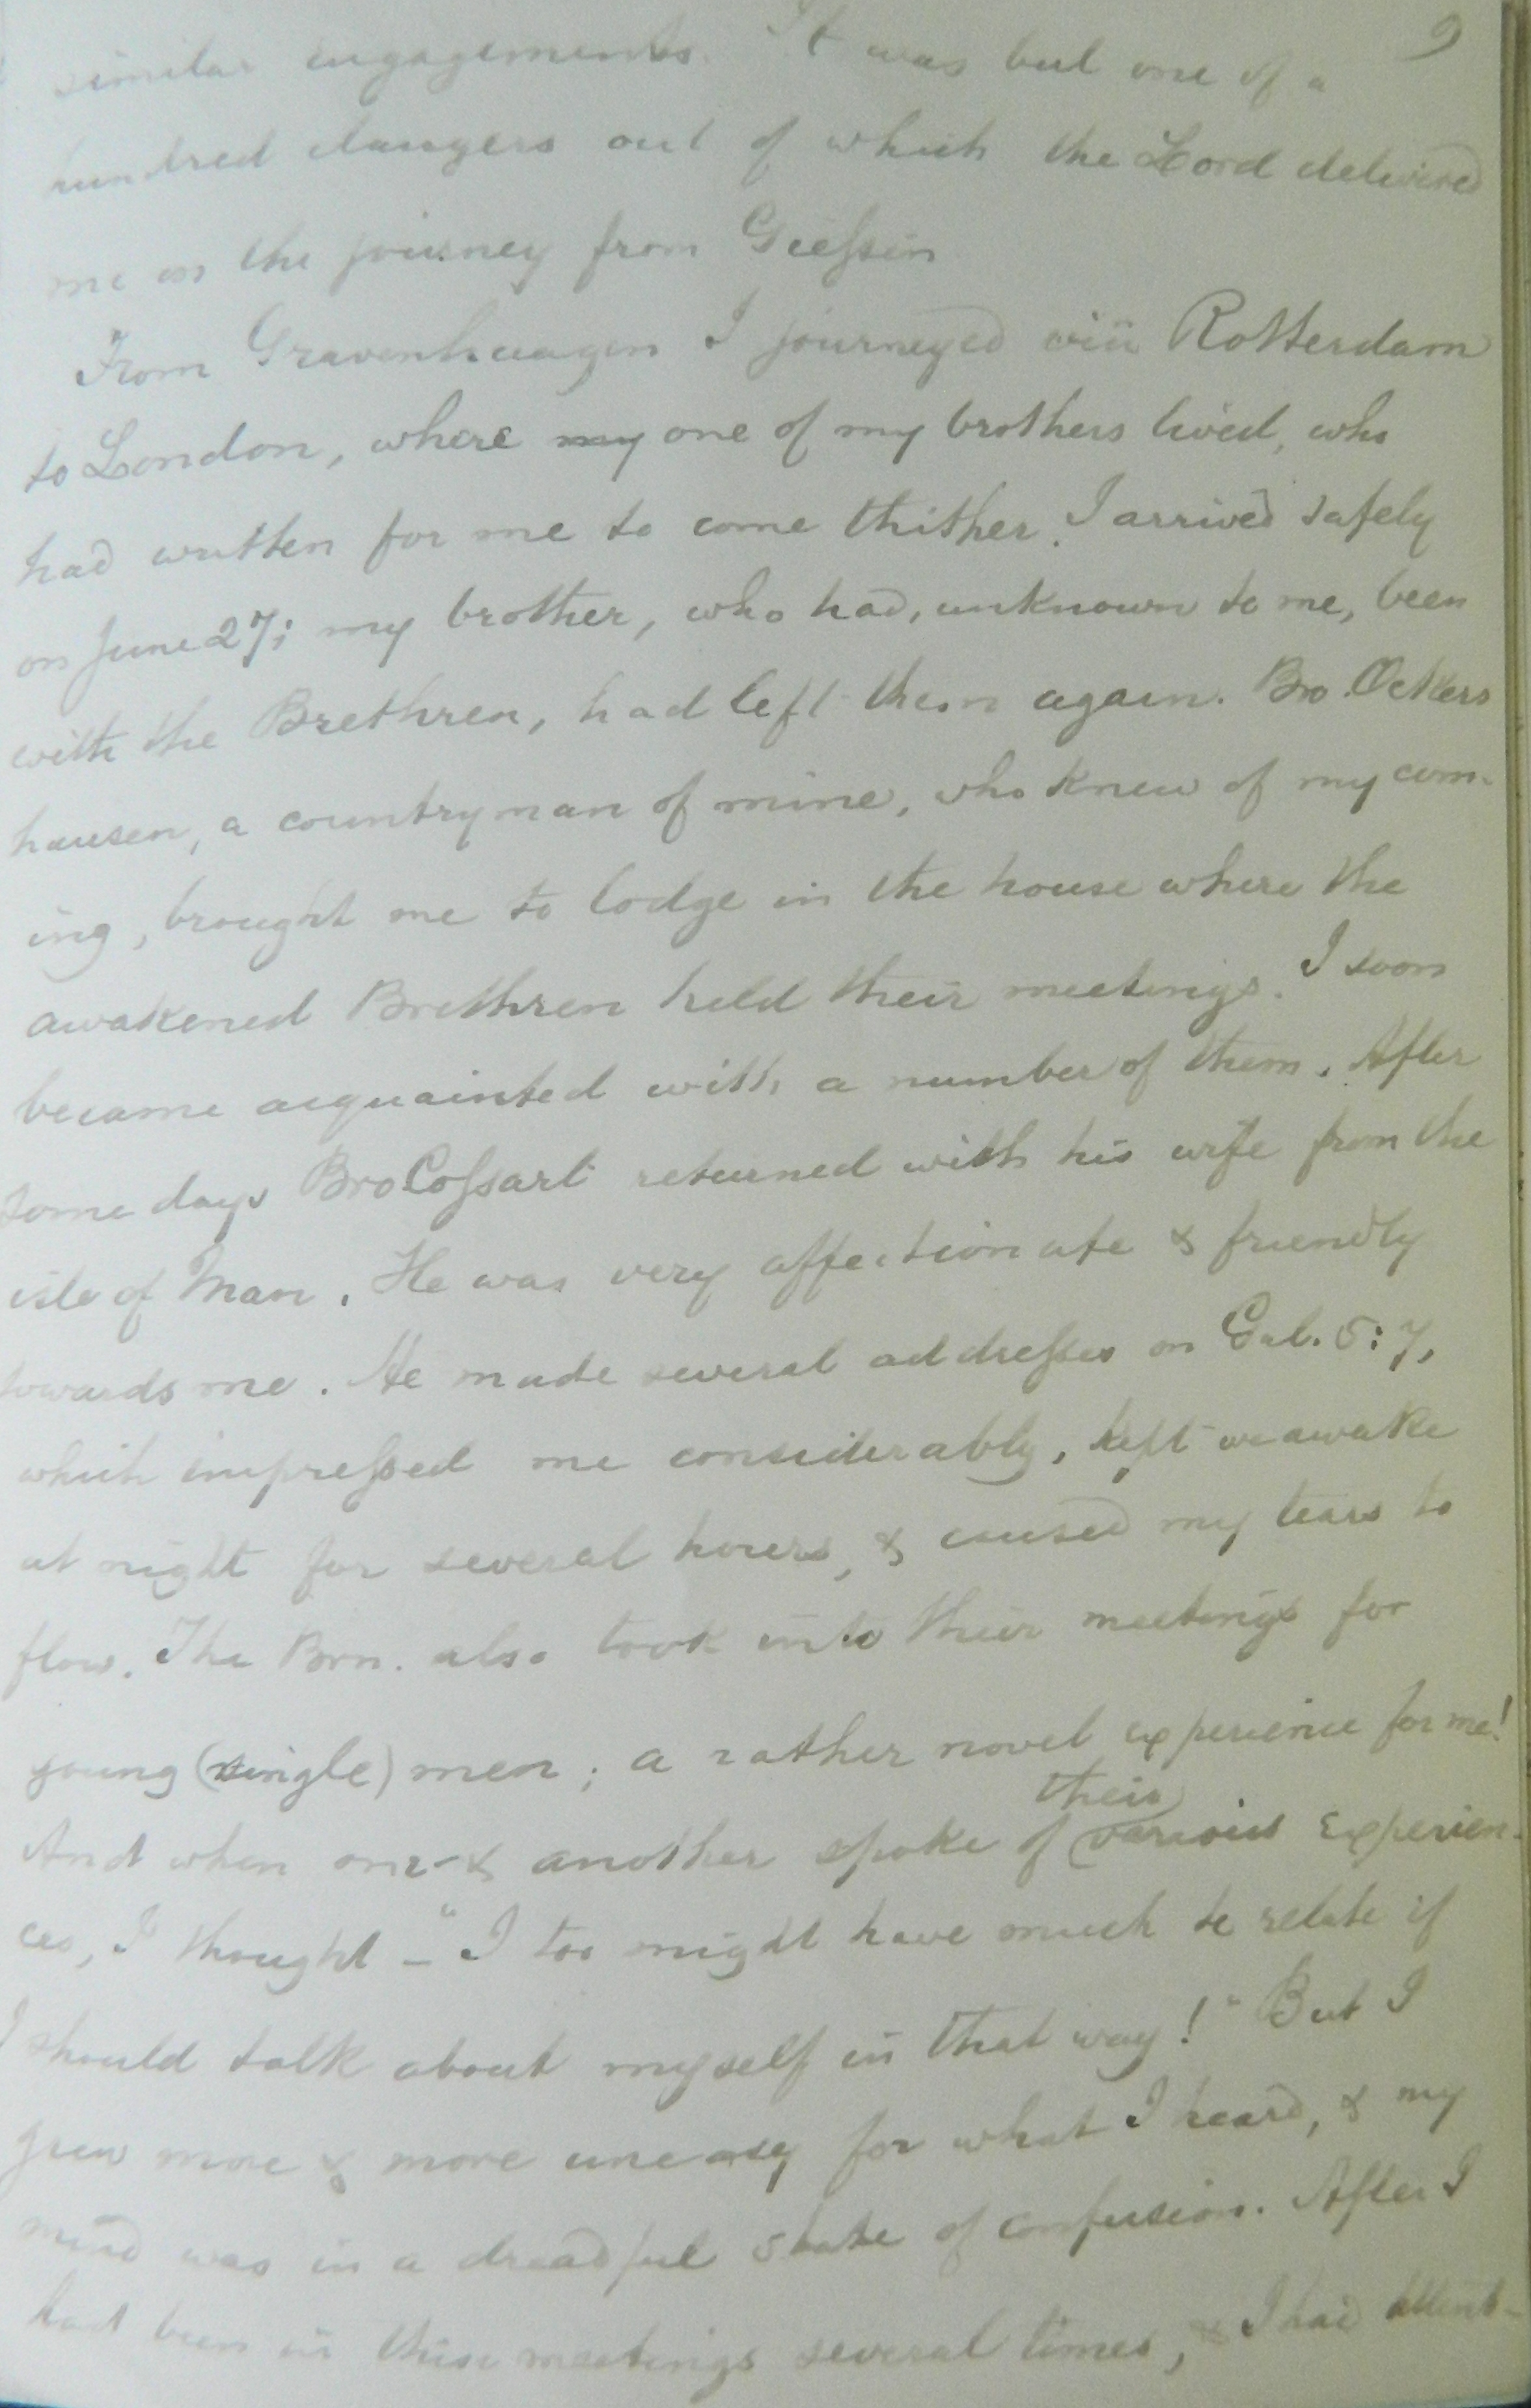 9
similar engagements. It was but one of a
hundred dangers out of which the Lord delivered
me on the journey from Giessen
From Gravenhaagen I journeyed via Rotterdam
to London, where my one of my brothers lived, who
had written for me to come thither. I arrived safely
on June 27; my brother, who had, unknown to me, been
with the Brethren, had left them again. Bro. Ockers
hausen, a countryman of mine, who knew of my com-
ing, brought me to lodge in the house where the
awakened Brethren held their meetings. I soon
became acquainted with a number of them. After
some days Bro Cossart returned with his wife from the
isle of Man. He was very affectionate & friendly
towards me. He made several addresses on Gal. 5:7,
which impressed me considerably, kept awake
at night for several hours, & caused my tears to
flow. The Brn. also took into their meetings for
young (single) men; a rather novel experience for me!
And when one & another spoke of their various experien-
ces, I thought – "I too might have much to relate if
I should talk about myself in that way!" But I
grew more & more uneasy for what I heard, & my
mind was in a dreadful state of confusion. After I
had been in these meetings several times, & I had